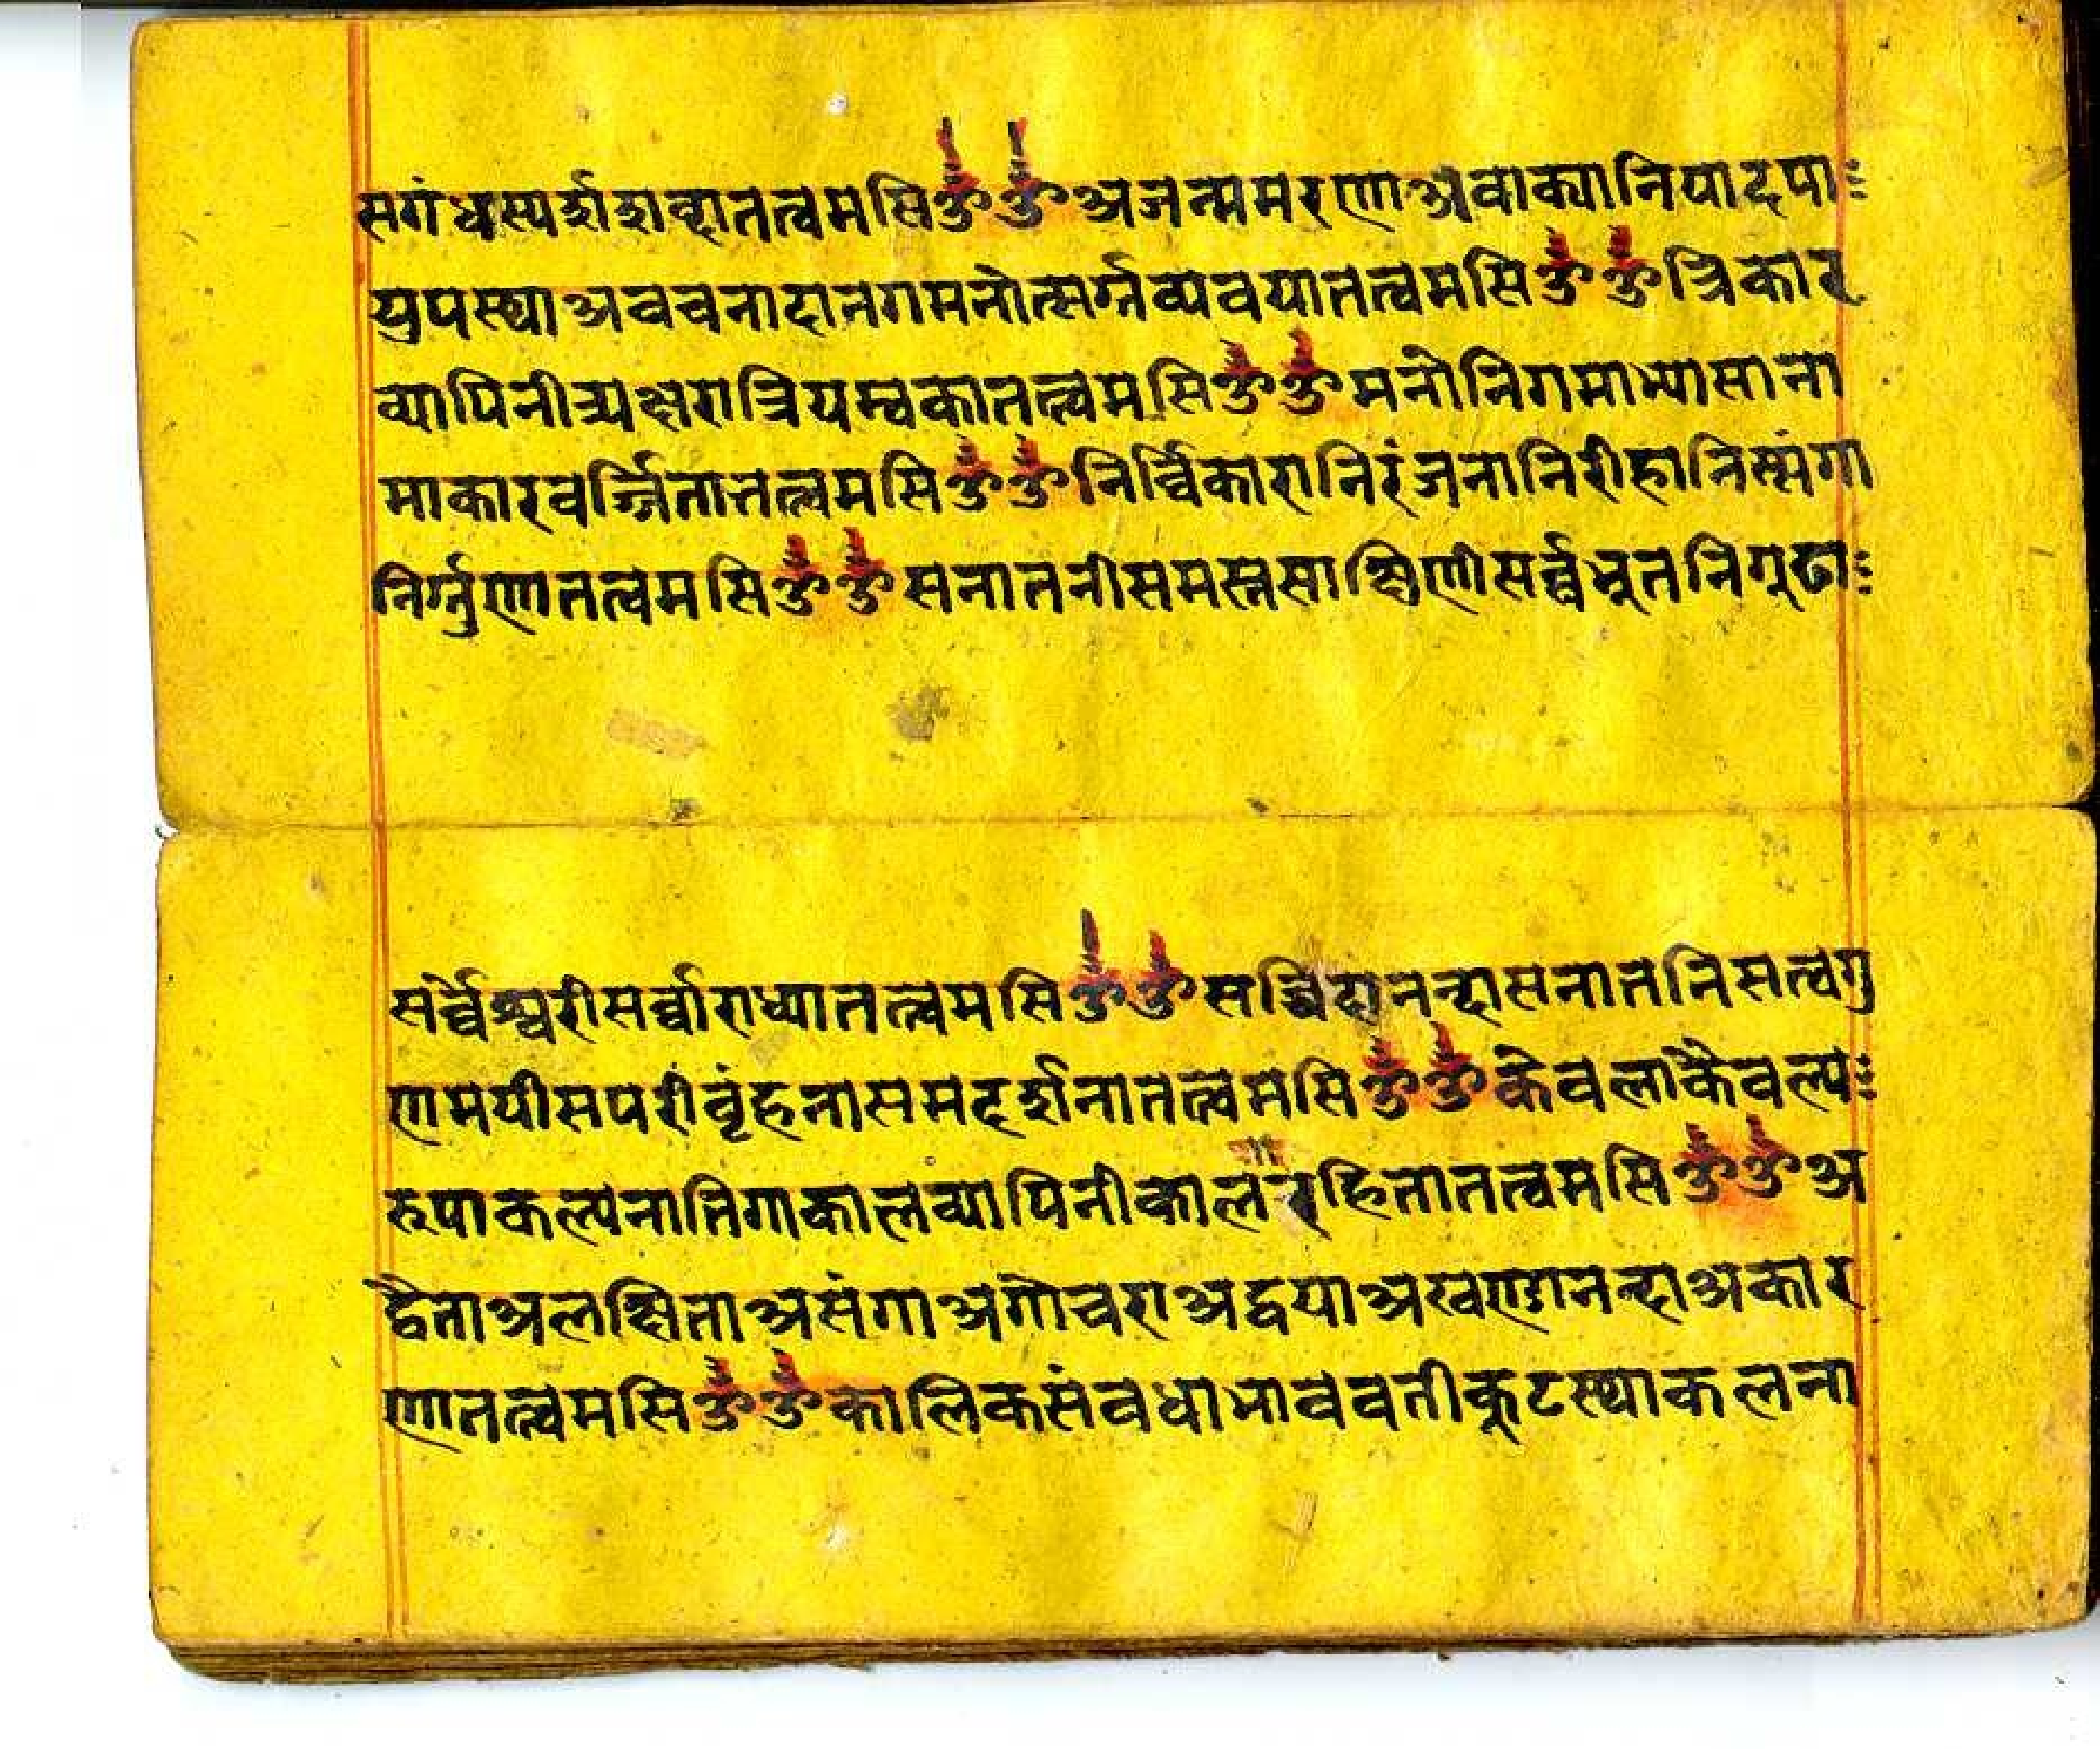 सगंधस्पर्शशव्दातत्त्वमसिॐॐअजन्ममरणाअवाक्यानियादपाः
युपस्थाअवचनादानगमनोत्सर्ग्गव्यवयातत्त्वमसिॐॐत्रिकार
व्यापिनीत्र्यक्षरात्रियम्वकातत्त्वमसिॐॐमनोनिगमाभ्यासाना
माकारवर्ज्जितातत्त्वमसिॐॐनिर्व्विकारानिरंजनानिरीहानिस्संगा
निर्ग्गुणातत्त्वमसिॐॐसनातनीसमस्तसाक्षिणीसर्व्वभूतनिगूढाः
सर्व्वेश्वरीसर्व्वाराध्यातत्त्वमसिॐॐसच्चिदानन्दासनातनिसत्वगु
णमयीसपरींवृंहनासमदर्शनातत्त्वमसिॐॐकेवलाकैवल्यः
रूपाकल्पनातिगाकालव्यापिनीकालरहितातत्त्वमसिॐॐअ
द्वैताअलक्षिताअसंगाअगोचराअद्वयाअखण्डानन्दाअकार
णातत्त्वमसिॐॐकालिकसंवधाभाववतीकूटस्थाकलना